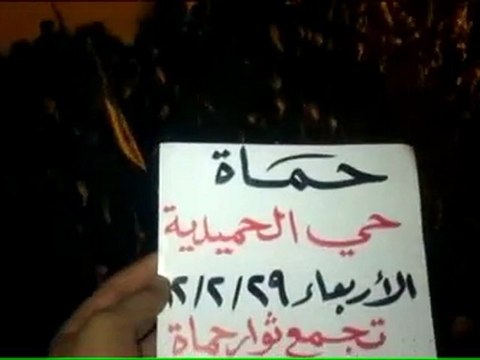 حماة
حي الحميدية
الأربعاء ٢٩/٢/٢
تجمع ثوار حماة